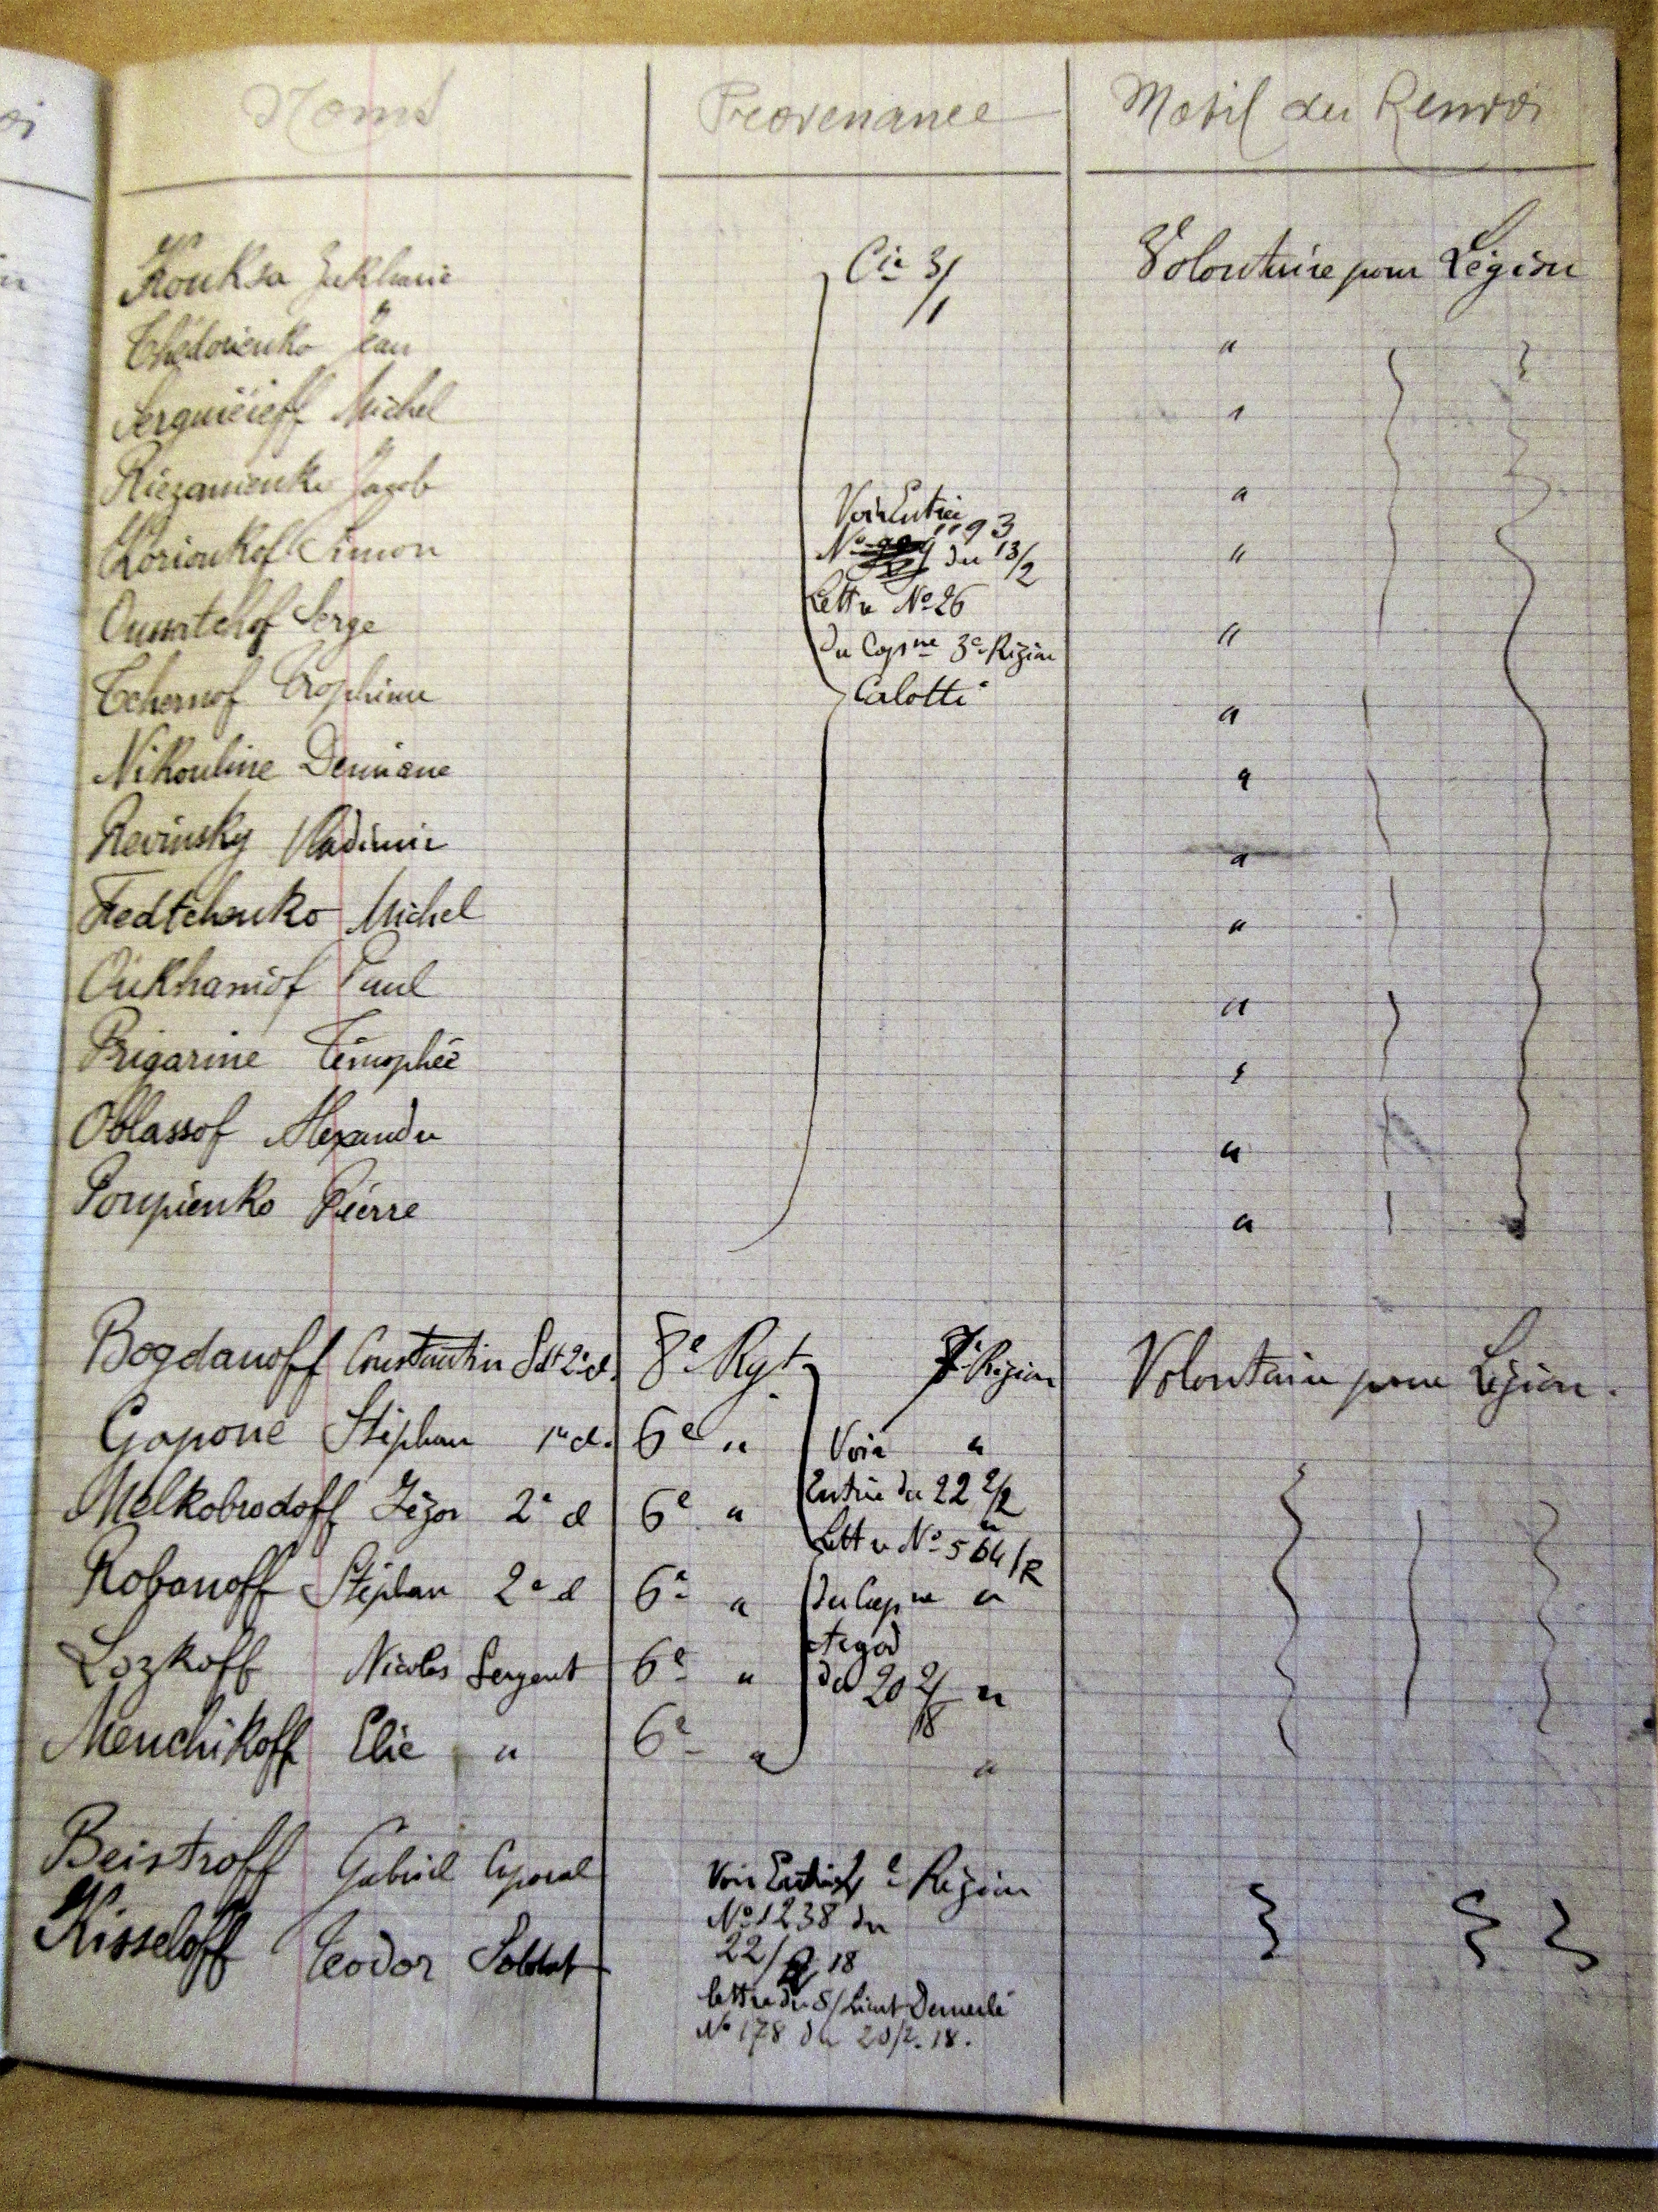 Noms Provenance Motif du Renvoi
Kouksa Cie 3/1 Volontaire pour Légion
Jean "
Serguiéieff Michel "
Riezanienko Jacob "
Voir Entrée
Korioukof Simon No 1193 du 13/2 "
Lettre No 26
Oussatchof Serge du Capne 3e Région "
Tchernof Trophime Calotti "
Nikouline Demiane "
Revinsky Vladimir "
Fedtchenko Michel "
Oukhaniof Paul "
Prigarine Timophée "
Oblassof Alexandre "
Poupienko Pierre "
Bogdanoff Constantin Sdt 2e cl. 8e Rgt 7e Région Volontaire pour Légion.
Gapone Stéphan 1re cl. 6e " Voir "
Melkobrodoff Jégor 2e cl 6e " Entrée du 22 2/2 "
Lettre No 564/R
Robanoff Stéphan 2e cl 6e " du Capne "
Lozkoff Nicolas Sergent 6e " du 20 2/18 "
Menchikoff Elie " 6e " "
Beistroff Gabriel Caporal Voir Entrée Région
No 1238 du
Kisseloff Teodor Soldat 22/2 18
lettre du S/Lieut
No 178 du 20/2.18.